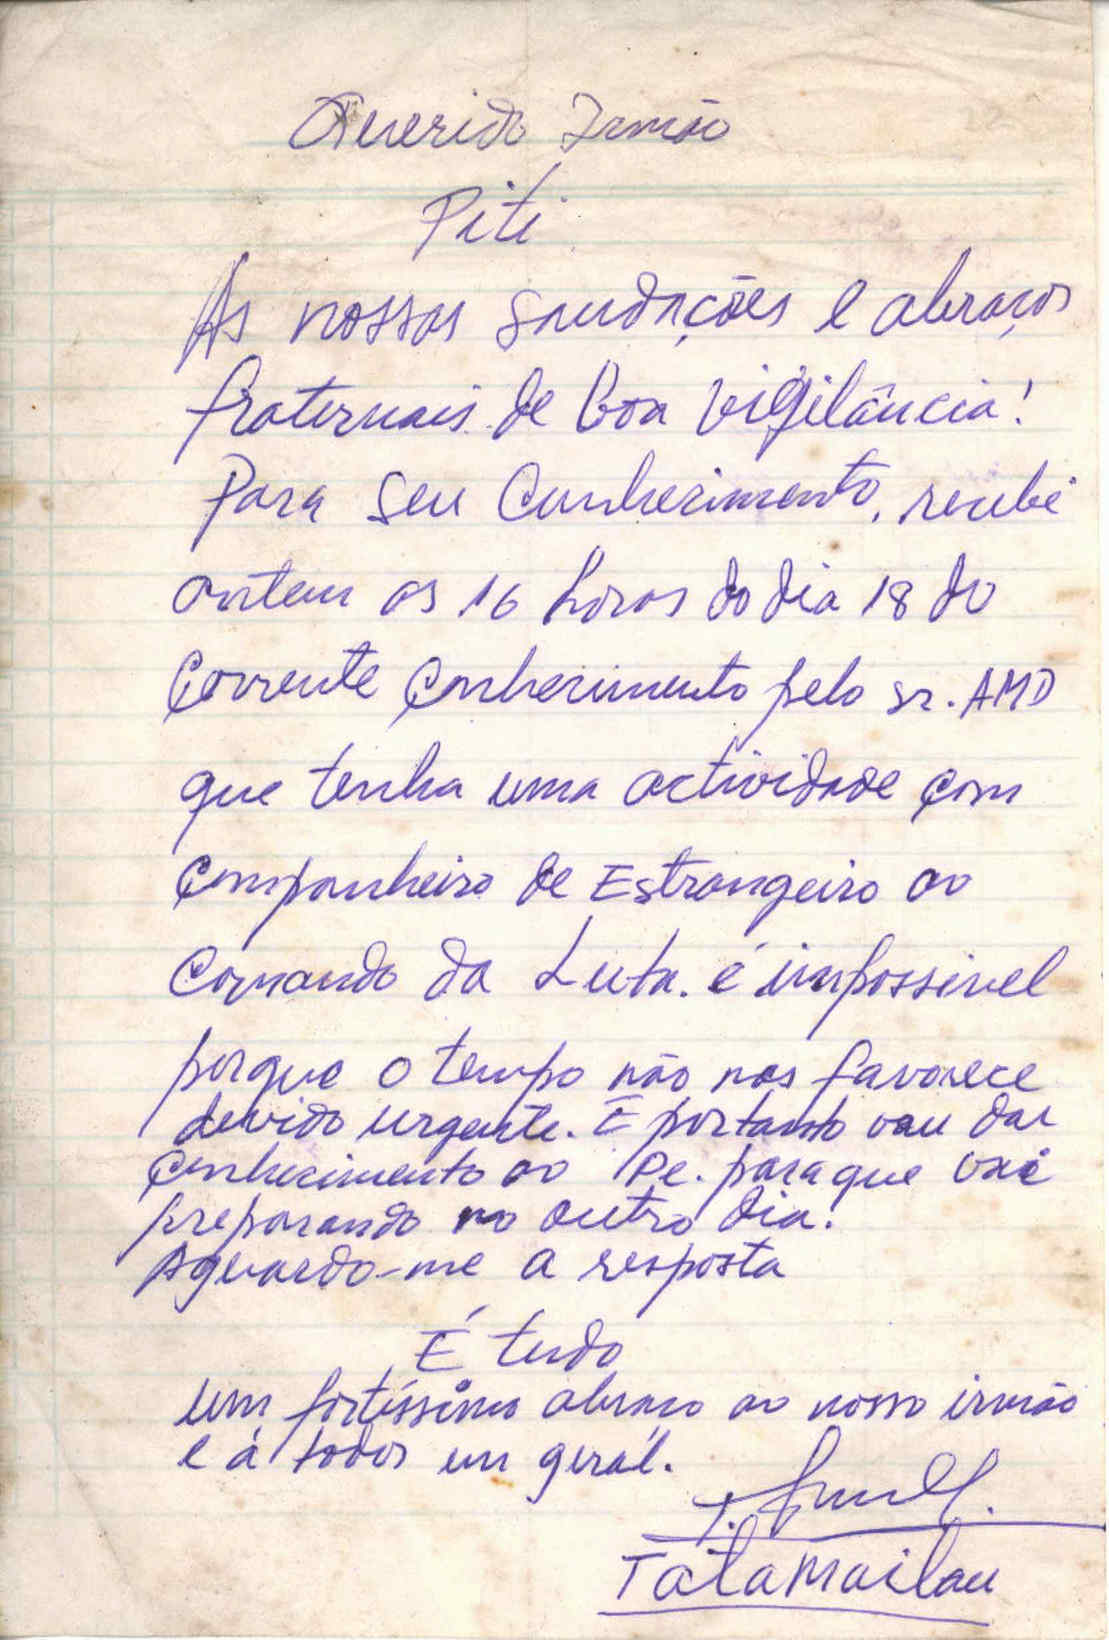 Querido Irmão
Piti
As nossas saudações e abraços
fraternais de boa vigilância!
Para seu Conhecimento, recebi
ontem as 16 horas do dia 18 do
Corrente Conhecimento pelo sr. AMD
que tenha uma actividade com
Companheiro de Estrangeiro ao
Comando da Luta. é impossivel
porque o tempo não nos favorece
devido urgente. E portanto vou dar
Conhecimento ao Pe. para que
preparando no outro dia.
Aguardo-me a resposta
É tudo
um fortíssimo abraço ao nosso irmão
e á todos em geral.
Tatamailau